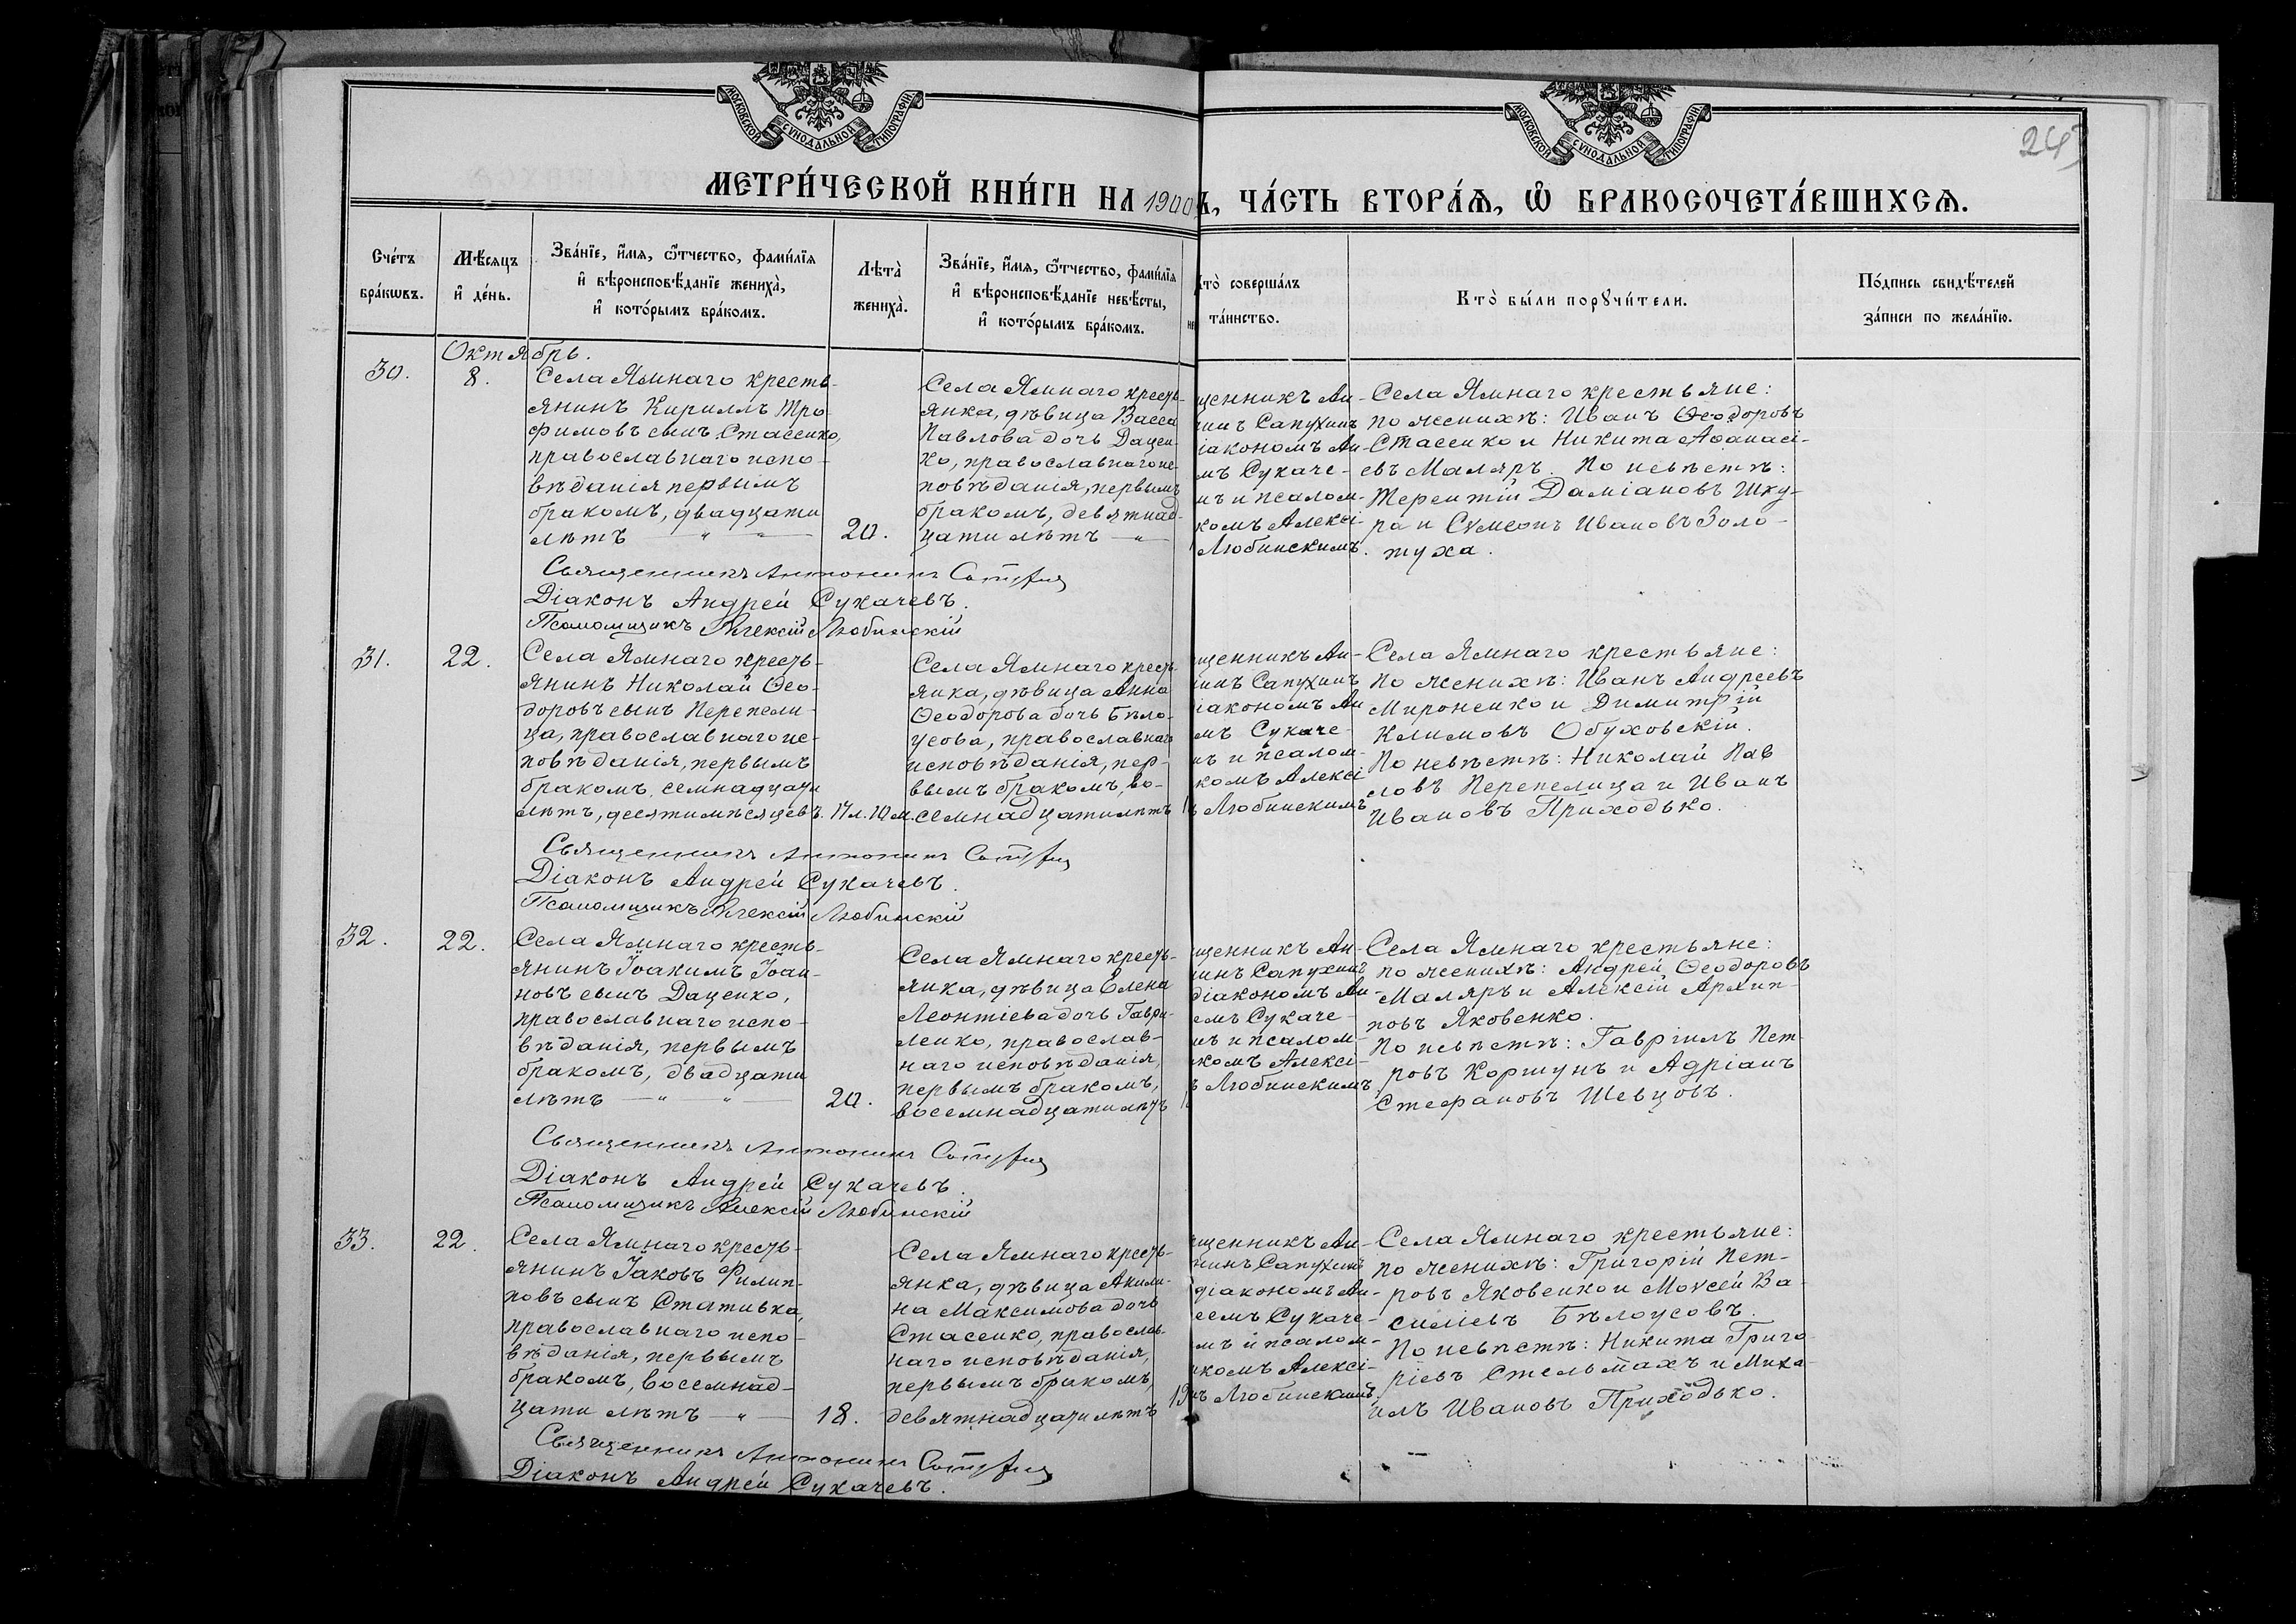 МОСКОВСКОЙ СУНОДАЛЬНОЙ ТИПОГРАФІИ.
МОСКОВСКОЙ СУНОДАЛЬНОЙ ТИПОГРАФІИ.
МЕТРИ́ЧЕСКОЙ КНИ́ГИ НА 1900 Ъ, ЧА́СТЬ ВТОРА́Ѧ, Ѡ҆ БРАКОСОЧЕТА́ВШИХСѦ.
Сче́тъ
бра́кѡвъ.
Мѣ́сѧцъ
и҆ де́нь.
Зва́нїе, и҆́мѧ, ѻ҆́тчество, фами́лїѧ
и҆ вѣроисповѣ́данїе жениха̀,
и҆ кото́рымъ бра́комъ.
Лѣта̀
жениха̀.
Зва́нїе, и҆́мѧ, ѻ҆́тчество, фами́лїѧ
и҆ вѣроисповѣ́данїе невѣ́сты,
и҆ кото́рымъ бра́комъ.
Кто̀ соверша́лъ
та́инство.
Кто̀ бы́ли порꙋчи́тели.
По́дпись свидѣ́телей
за́писи по жела́нїю.
Октябрь.
30.
8.
Села Ямнаго кресть-
янинъ Кириллъ Тро-
фимовъ сынъ Стасенко,
православнаго испо-
вѣданія первымъ
бракомъ, двадцати
лѣтъ — " — " —
20.
Села Ямнаго кресть-
янка, дѣвица Васса
Павлова дочь Дацен-
ко, православнаго ис-
повѣданія, первымъ
бракомъ, девятнад-
цати лѣтъ — " —
щенникъ Ан-
нинъ Сапухинъ
іакономъ Ан-
мъ Сукаче-
мъ и псалом-
комъ Алексі-
Любинскимъ.
Села Ямнаго крестьяне:
по женихѣ: Иванъ Ѳеодоровъ
Стасенко и Никита Аѳанасі-
евъ Маляръ. По невѣстѣ:
Терентій Даміановъ Шку-
ра и Сѵмеонъ Ивановъ Золо-
туха.
Священникъ Антонинъ Сапухинъ
Діаконъ Андрей Сукачевъ.
Псаломщикъ Алексій Любинскій
31.
22.
Села Ямнаго кресть-
янинъ Николай Ѳео-
доровъ сынъ Перепели-
ца, православнаго ис-
повѣданія, первымъ
бракомъ, семнадцати
лѣтъ, десяти мѣсяцевъ.
17 л. 10 м.
Села Ямнаго кресть-
янка, дѣвица Анна
Ѳеодорова дочь Бѣло-
усова, православнаго
исповѣданія, пер-
вымъ бракомъ, во-
семнадцати лѣтъ
щенникъ Ан-
нинъ Сапухинъ
іакономъ Ан
мъ Сукаче-
мъ и псалом-
комъ Алексі
ъ Любинскимъ
Села Ямнаго крестьяне:
по женихѣ: Иванъ Андреевъ
Мироненко и Димитрій
Климовъ Обуховскій.
По невѣстѣ: Николай Пав
ловъ Перепелица и Иванъ
Ивановъ Приходько.
Священникъ Антонинъ Сапухинъ
Діаконъ Андрей Сукачевъ.
Псаломщикъ Алексій Любинскій
32.
22.
Села Ямнаго кресть-
янинъ Іоакимъ Іоан-
новъ сынъ Даценко,
православнаго испо-
вѣданія, первымъ
бракомъ, двадцати
лѣтъ — " — " —
20.
Села Ямнаго кресть-
янка, дѣвица Елена
Леонтіева дочь Гаври-
ленко, православ-
наго исповѣданія,
первымъ бракомъ,
восемнадцати лѣтъ
щенникъ Ан-
нинъ Сапухинъ
діакономъ Ан-
емъ Сукаче-
мъ и псалом-
комъ Алексі-
ъ Любинскимъ.
Села Ямнаго крестьяне:
по женихѣ: Андрей Ѳеодоровъ
Маляръ и Алексій Архип-
повъ Яковенко.
По невѣстѣ: Гавріилъ Пет-
ровъ Коршунъ и Адріанъ
Стефановъ Шевцовъ.
Священникъ Антонинъ Сапухинъ
Діаконъ Андрей Сукачевъ.
Псаломщикъ Алексій Любинскій
33.
22.
Села Ямнаго кресть-
янинъ Іаковъ Филип-
повъ сынъ Стативка,
православнаго испо-
вѣданія, первымъ
бракомъ, восемнад-
цати лѣтъ — " —
18.
Села Ямнаго кресть-
янка, дѣвица Акили-
на Максимова дочь
Стасенко, православ-
наго исповѣданія,
первымъ бракомъ,
девятнадцати лѣтъ
19
щенникъ Ан-
нинъ Сапухинъ
діакономъ Ан-
еемъ Сукаче-
мъ и псалом-
комъ Алексі-
мъ Любинскимъ.
Села Ямнаго крестьяне:
по женихѣ: Григорій Пет-
ровъ Яковенко и Моѵсей Ва-
силіевъ Бѣлоусовъ.
По невѣстѣ: Никита Григо-
ріевъ Стельмахъ и Миха-
илъ Ивановъ Приходько.
Священникъ Антонинъ Сапухинъ
Діаконъ Андрей Сукачевъ.